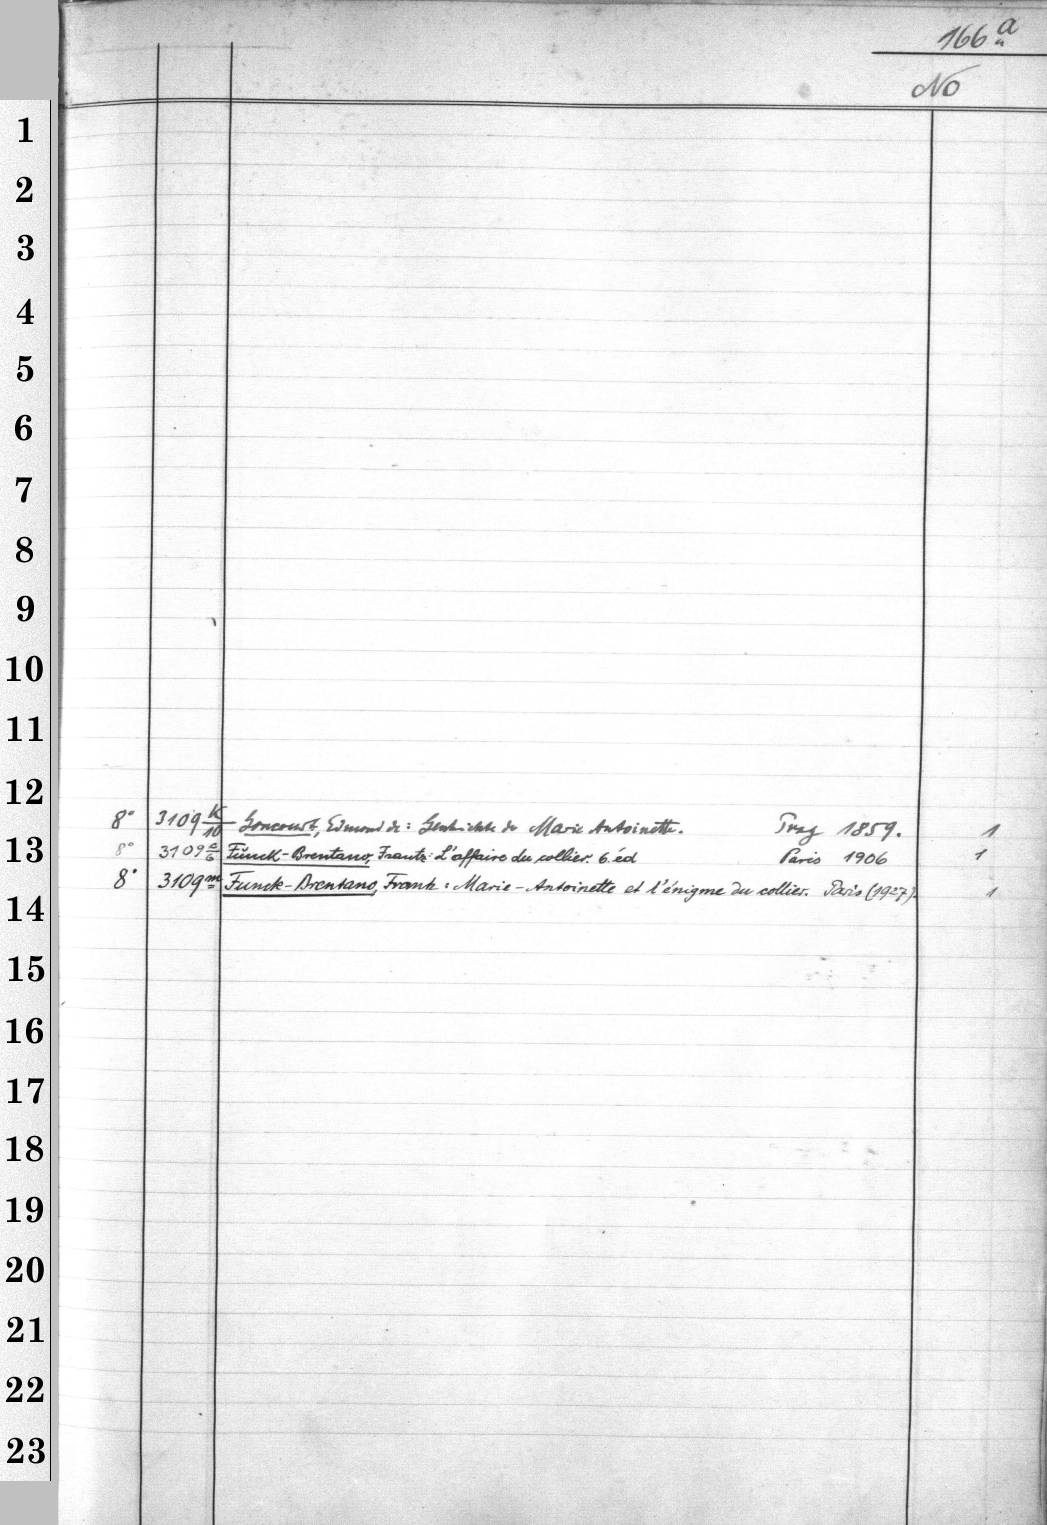 166 a
No
1
2
3
4
5
6
7
8
9
10
11
12
8° 3109 K/10 Goncourt, Edmond de: Geschichte der Marie Antoinette. Prag 1859. 1
13
8° 3109 Funck-Brentano, Frantz: L'affaire du collier. 6. éd Paris 1906 1
8° 3109 m Funck-Brentano, Frank: Marie-Antoinette et l'énigme du collier. Paris (1927). 1
14
15
16
17
18
19
20
21
22
23